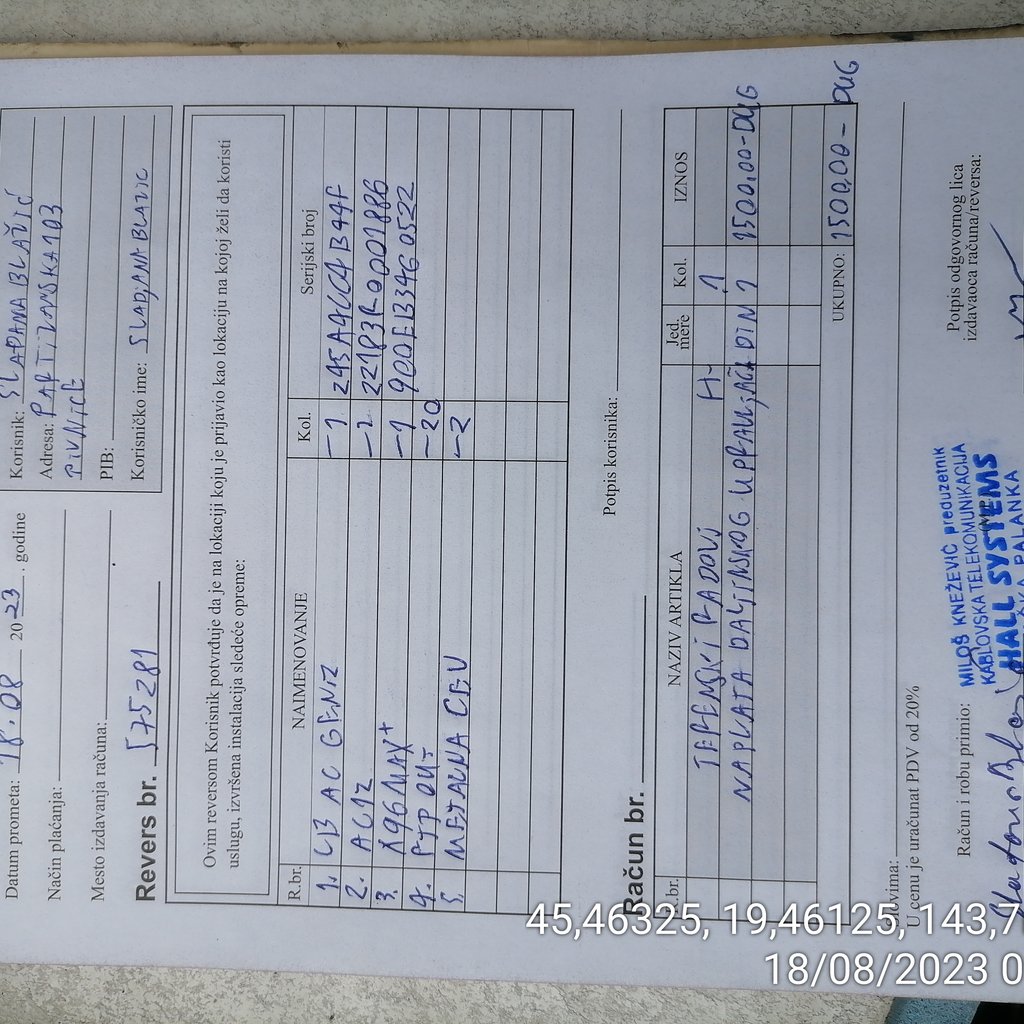 Datum prometa: 18.08 2023. godine
Način plaćanja:
Mesto izdavanja računa:
Revers br. 575281
Korisnik: SLAĐANA BLAŽIĆ
Adresa: PARTIZANSKA 103
PIVNICE
PIB:
Korisničko ime: SLADJANA BLAZIC
Ovim reversom Korisnik potvrđuje da je na lokaciji koju je prijavio kao lokaciju na kojoj želi da koristi
uslugu, izvršena instalacija sledeće opreme:
R.br. NAIMENOVANJE Kol. Serijski broj
1. LB AC GEN2 -1 245A4CC4B44F
2. -1 22183R00001886
3. X96 MAX+ -1 900E133460522
4. FTP OUT -20
5. METALNA CEV -2
Potpis korisnika:
Račun br.
R.br. NAZIV ARTIKLA Jed. mere Kol. IZNOS
TERENSKI RADOVI H- 1
NAPLATA DALJINSKOG UPRAVLJAČA DIN 1 1500,00-DUG
UKUPNO: 1500,00- DUG
U cenu je uračunat PDV od 20%
Račun i robu primio:
MILOŠ KNEŽEVIĆ preduzetnik
KABLOVSKA TELEKOMUNIKACIJA
HALL SYSTEMS
PALANKA
Potpis odgovornog lica
izdavaoca računa/reversa:
45,46325, 19,46125,143,7
18/08/2023 0